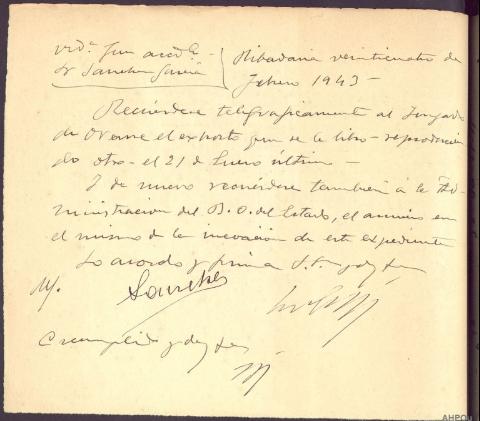 Sr Sanchez García
Ribadavia veinticuatro de
Febrero 1943 -
Recuérdese telegraficamente al Juzgado
de Orense el exhorto que se le libro - reproducien
do otro - el 21 de Enero último -
Y de nuevo recuérdese también á la Ad-
ministracion del B. O. del Estado, el anuncio en
el mismo de la incoación de este expediente
Lo acordo y firma S. S. y doy fe
M.
Sanchez
Cumplido y doy fe
AHPOU